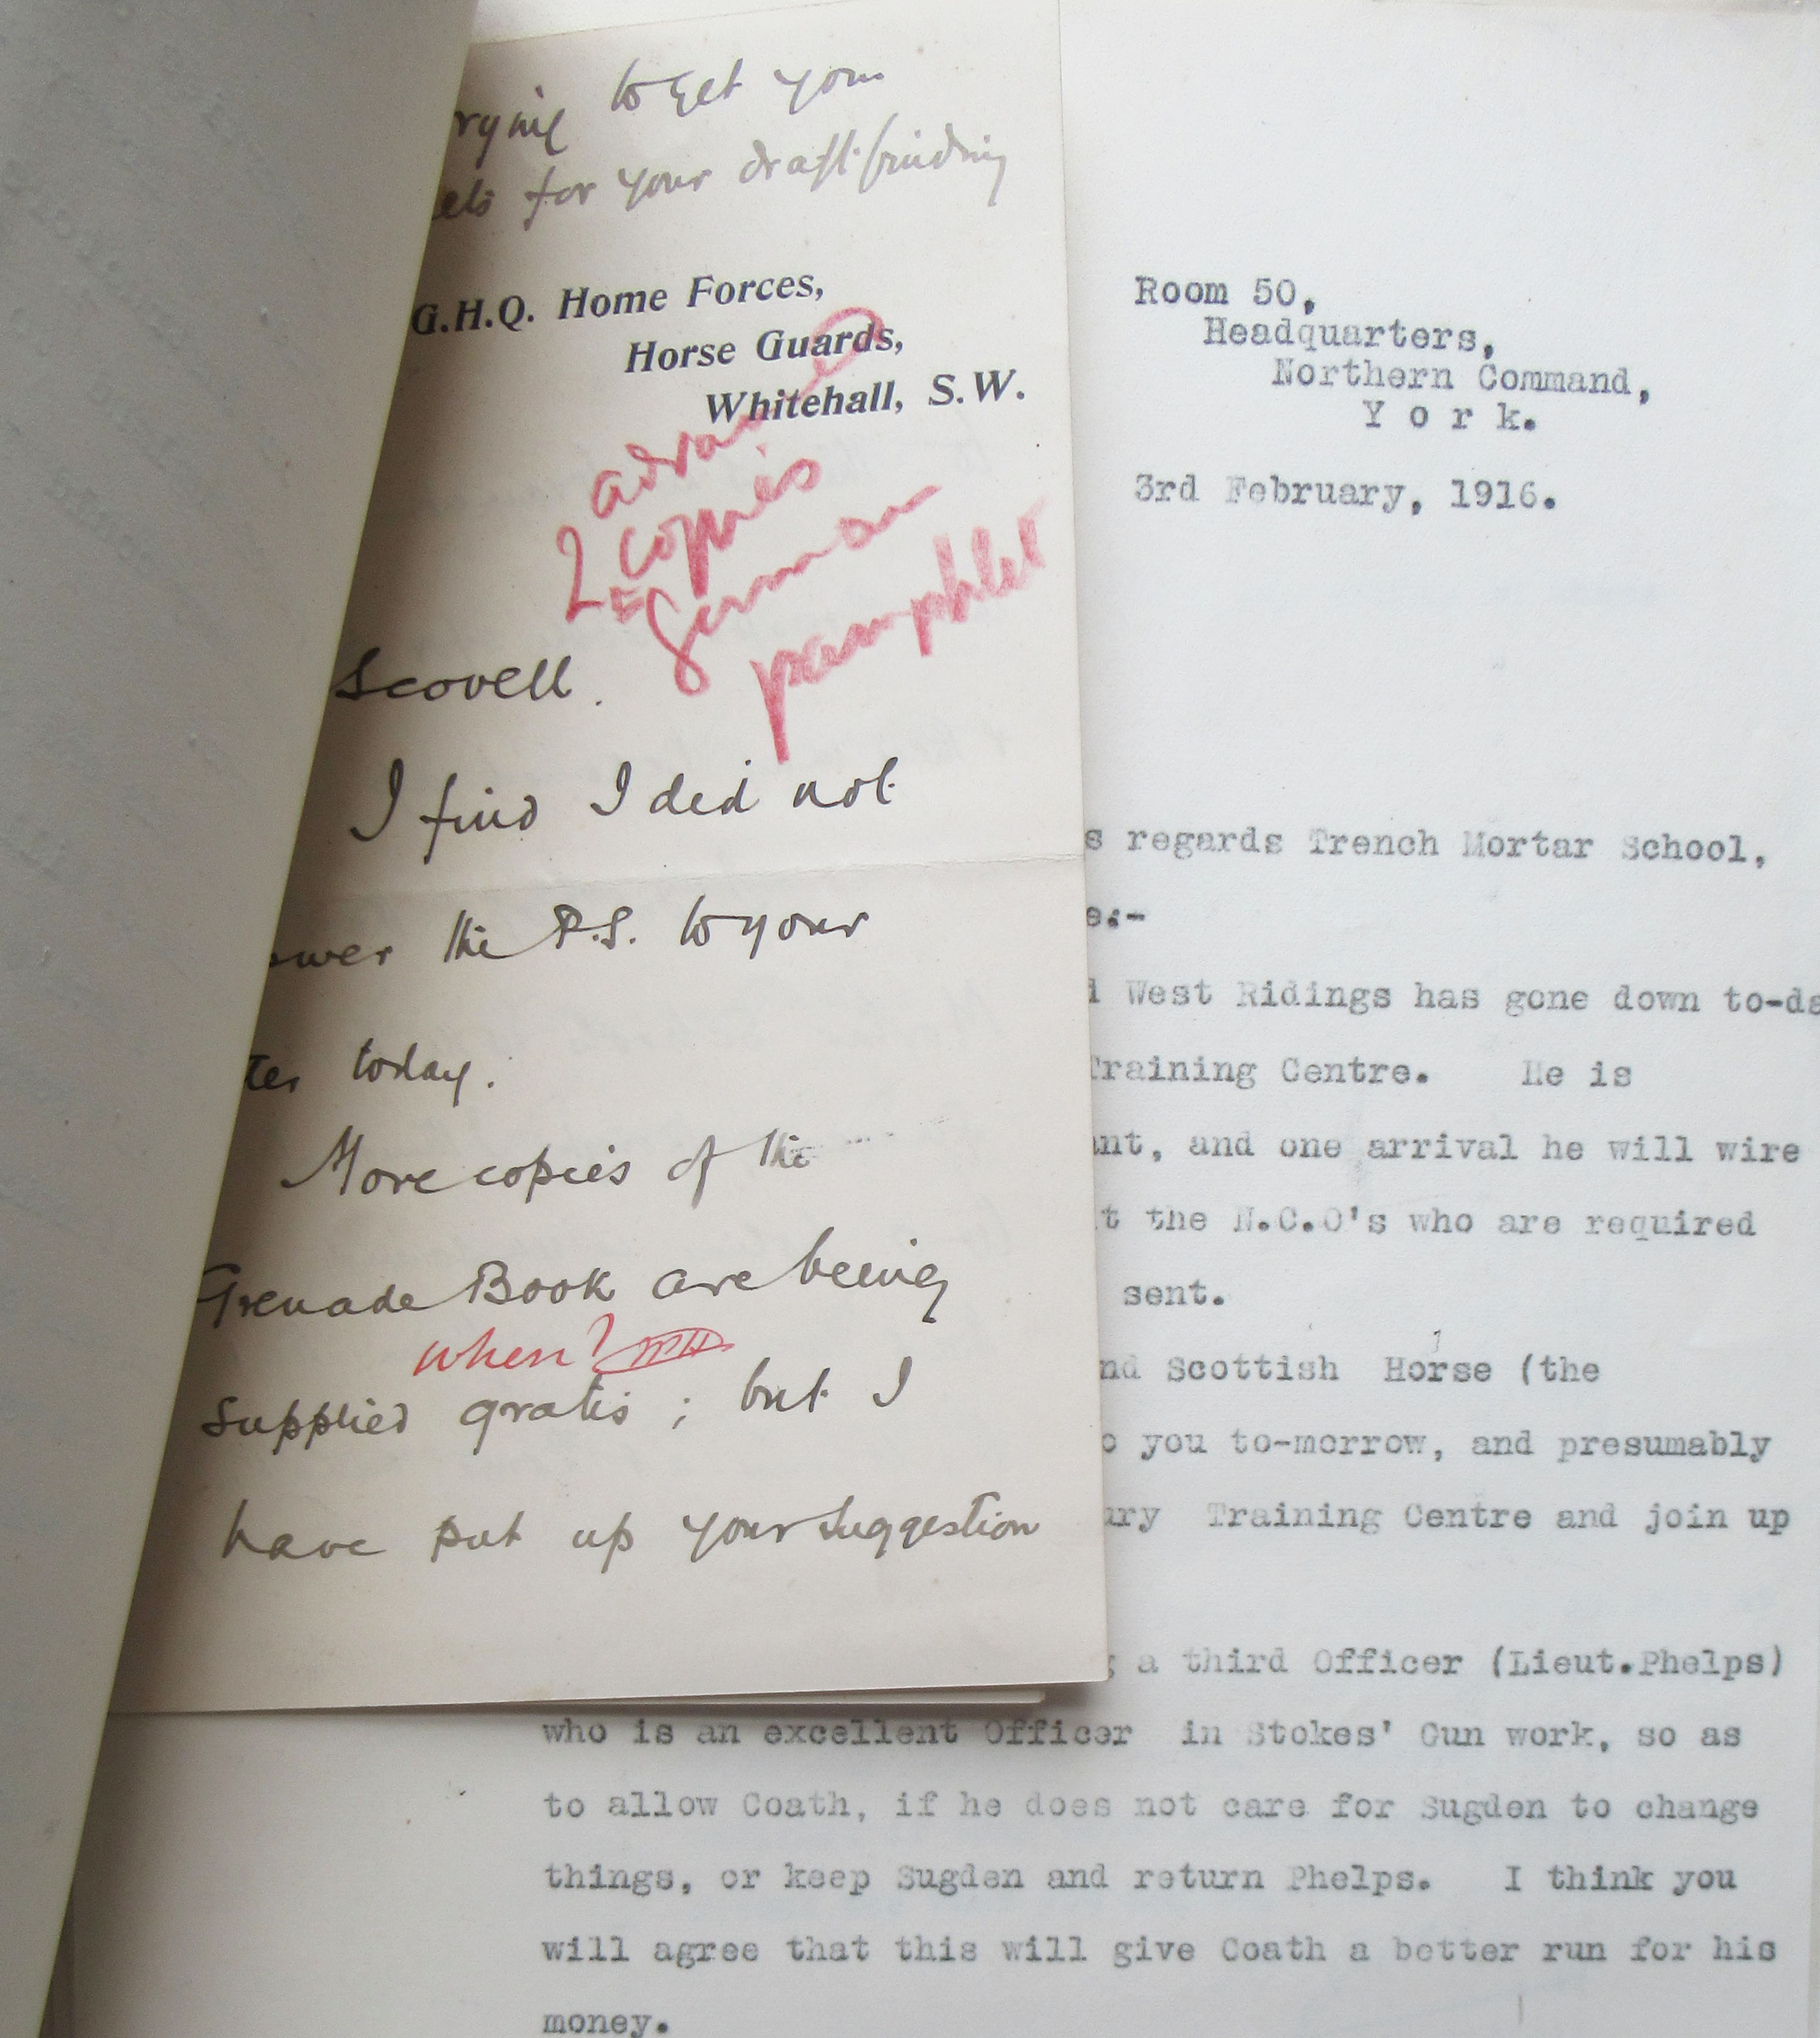 rying to get you
ets for your draft finding
G.H.Q. Home Forces,
Horse Guards,
Whitehall, S.W.
2 copies
German
pamphlet
Scovell.
I find I did not
swer the P.S. to your
ter today.
More copies of the
Grenade Book are being
when?
supplied gratis; but I
have put up your suggestion
Room 50,
Headquarters,
Northern Command,
Y o r k.
3rd February, 1916.
s regards Trench Mortar School,
e:-
d West Ridings has gone down to-da
Training Centre. He is
ant, and one arrival he will wire
t the N.C.O's who are required
sent.
nd Scottish Horse (the
o you to-morrow, and presumably
ury Training Centre and join up
g a third Officer (Lieut.Phelps)
who is an excellent Officer in Stokes' Gun work, so as
to allow Coath, if he does not care for Sugden to change
things, or keep Sugden and return Phelps. I think you
will agree that this will give Coath a better run for his
money.